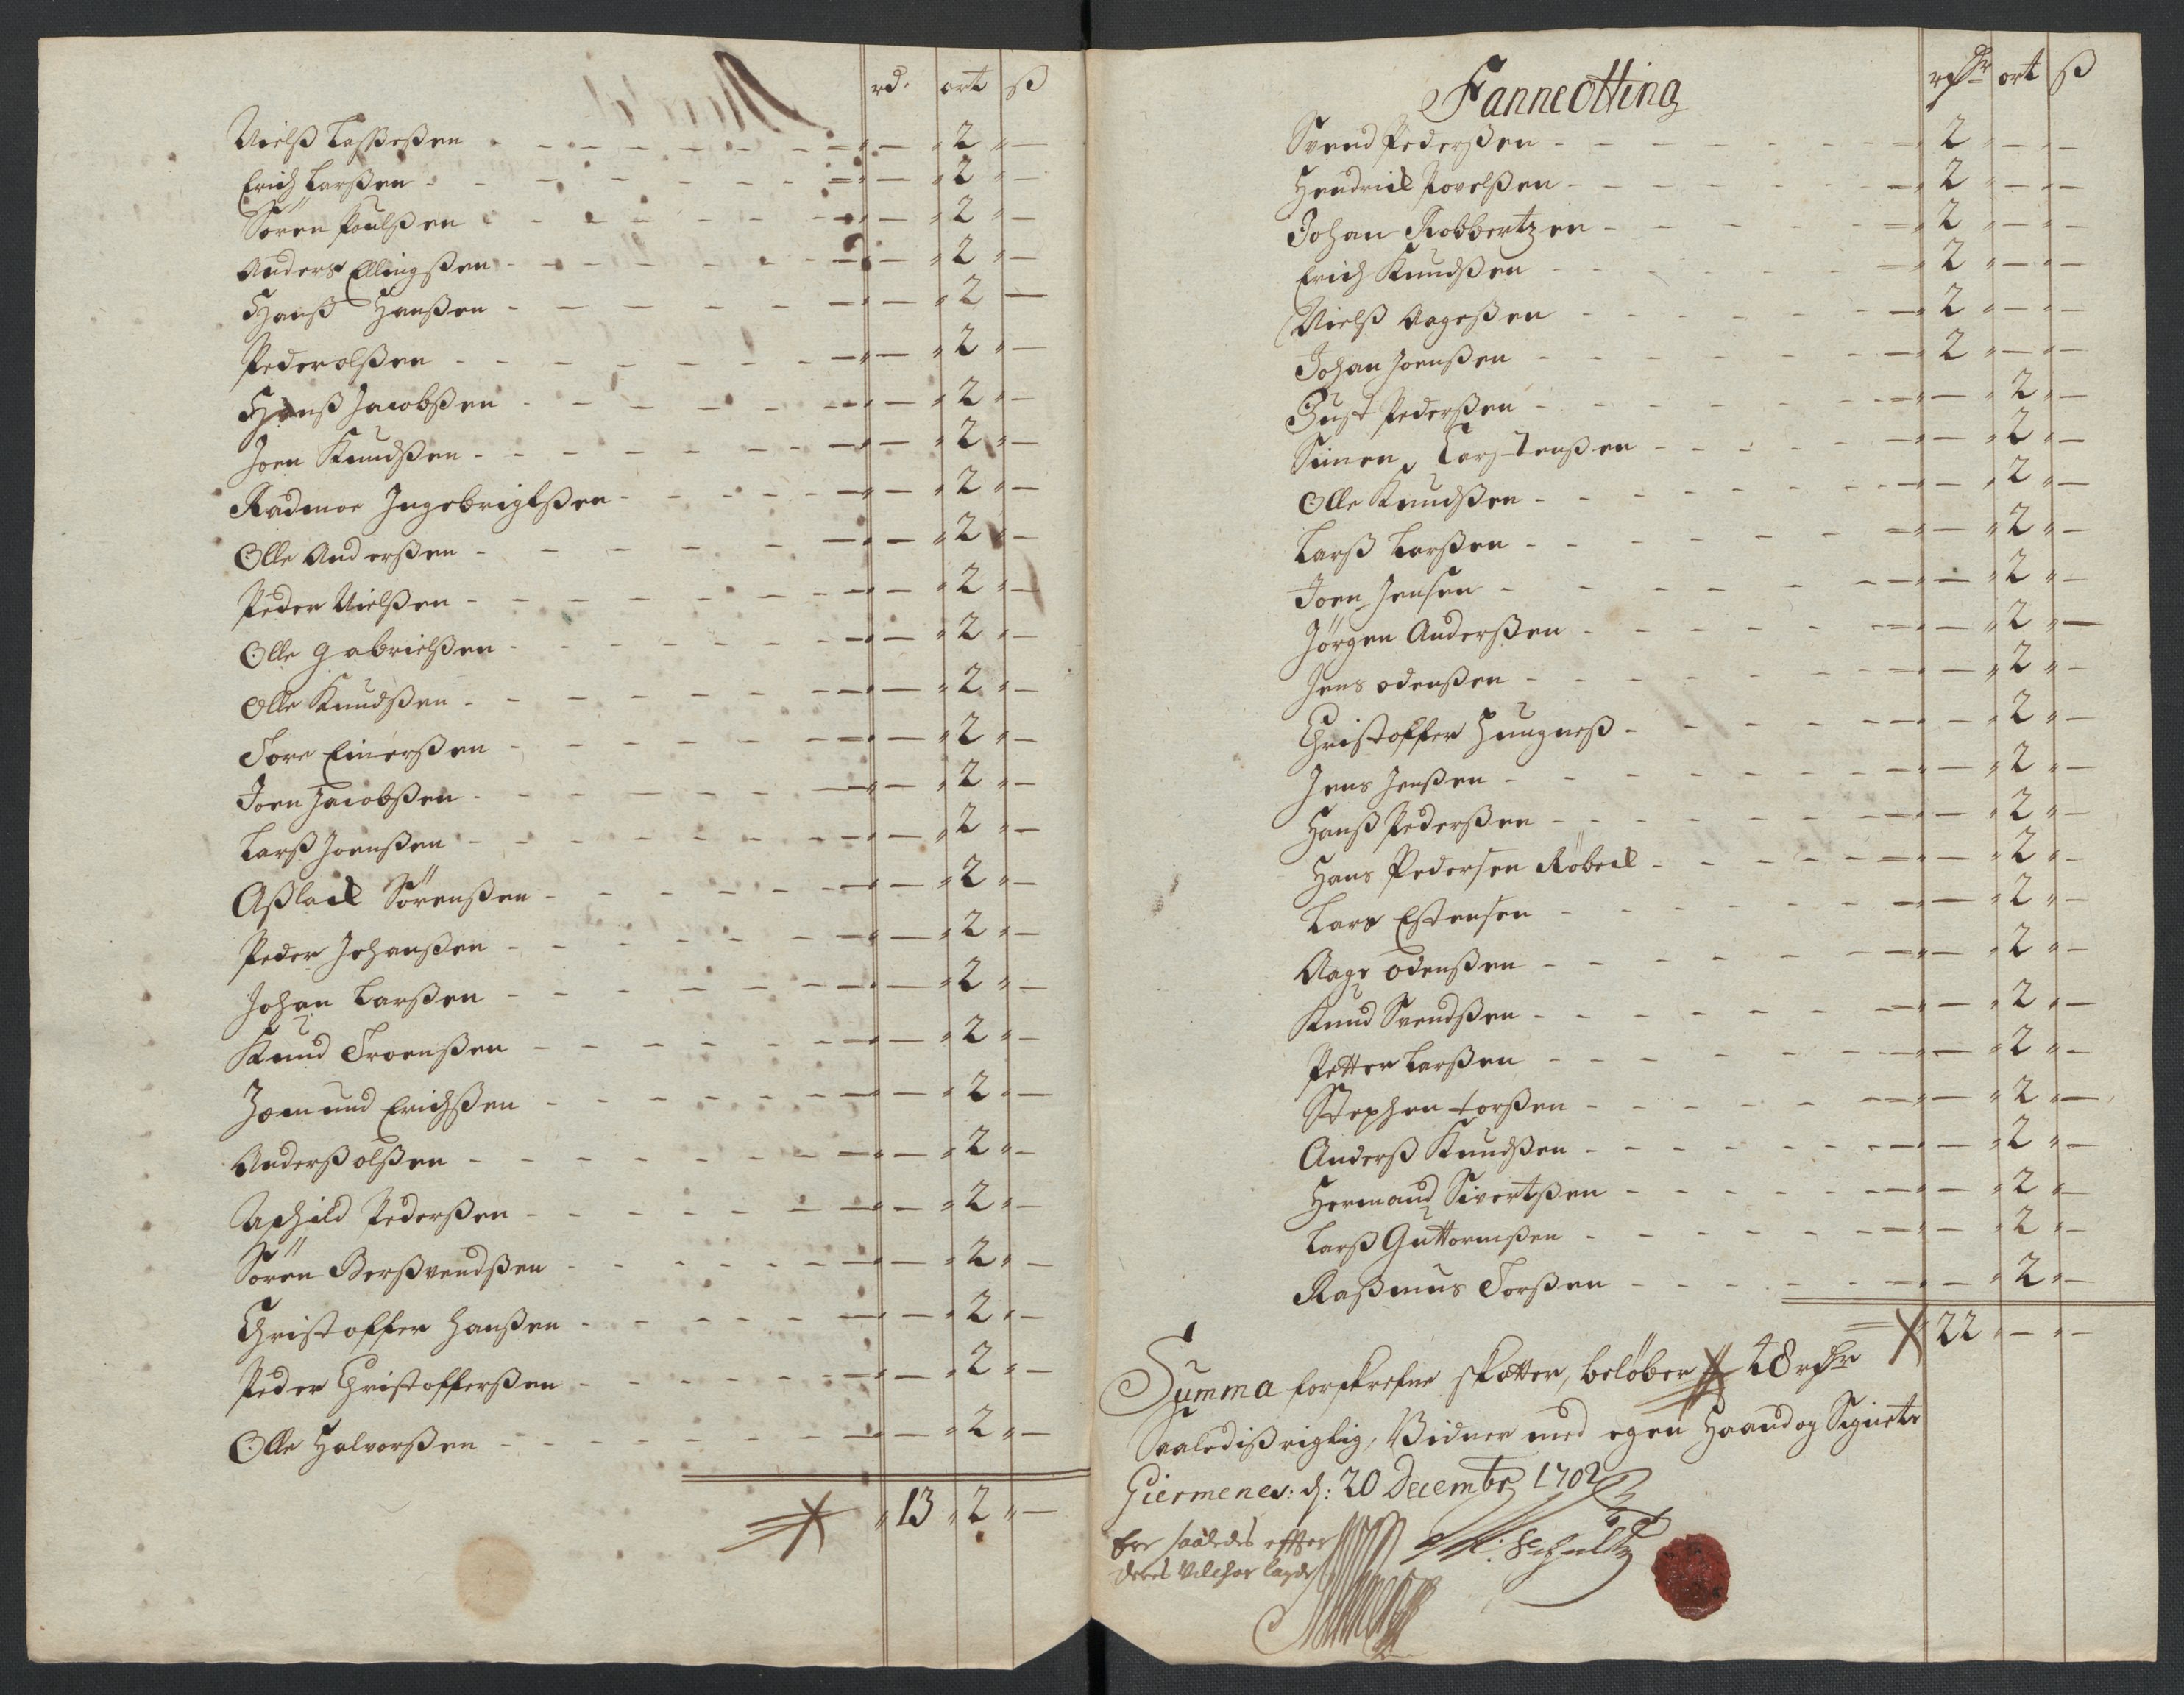 rd. ort ß
Nielß Laßeßen - 2 -
Erich Larßen - 2 -
Sören Poulßen - 2 -
Anders Ellingßen - 2 -
Hanß Hanßen - 2 -
Peder olßen - 2 -
Hanß Jacobßen - 2 -
Joen Knudßen - 2 -
Radmoe Ingebrigtßen - 2 -
Olle Anderßen - 2 -
Peder Nielßen - 2 -
Olle Gabrielßen - 2 -
Olle Knudßen - 2 -
Tore Einerßen - 2 -
Joen Jacobßen - 2 -
Larß Joenßen - 2 -
Aßlack Sörenßen - 2 -
Peder Johanßen - 2 -
Johan Larßen - 2 -
Knud Troenßen - 2 -
Joemund Erichßen - 2 -
Anderß olßen - 2 -
Pederßen - 2 -
Sören Berßvendßen - 2 -
Christoffer Hanßen - 2 -
Peder Christofferßen - 2 -
Olle Halvorßen - 2 -
13 2 -
Fanne Otting
rdr ort ß
Svend Pederßen 2 - -
Hendrick Povelßen 2 - -
Johan Robbertzen 2 - -
Erich Knudßen 2 - -
Nielß Aageßen 2 - -
Johan Joenßen 2 - -
Just Pederßen - 2 -
Simen Carstenßen - 2 -
Olle Knudßen - 2 -
Larß Larßen - 2 -
Joen Jensen - 2 -
Jörgen Anderßen - 2 -
Jens odenßen - 2 -
Christoffer Hungneß - 2 -
Jens Jenßen - 2 -
Hanß Pederßen - 2 -
Hans Pedersen Röbeck - 2 -
Lars Estensen - 2 -
Aage odenßen - 2 -
Knud Svendßen - 2 -
Petter Larßen - 2 -
Stephen torßen - 2 -
Anderß Knudßen - 2 -
Hermand Sivertßen - 2 -
Larß Guttormßen - 2 -
Raßmus Torßen - 2 -
22 - -
Summa forskrefne skatter, beløber 48 rdr
Saalediß rigtig, Vidner med egen Haand og Signete
Giermenes: d: 20 Decembr 1702
Er saaledes effter
deres Vilchor lagde
Schultz